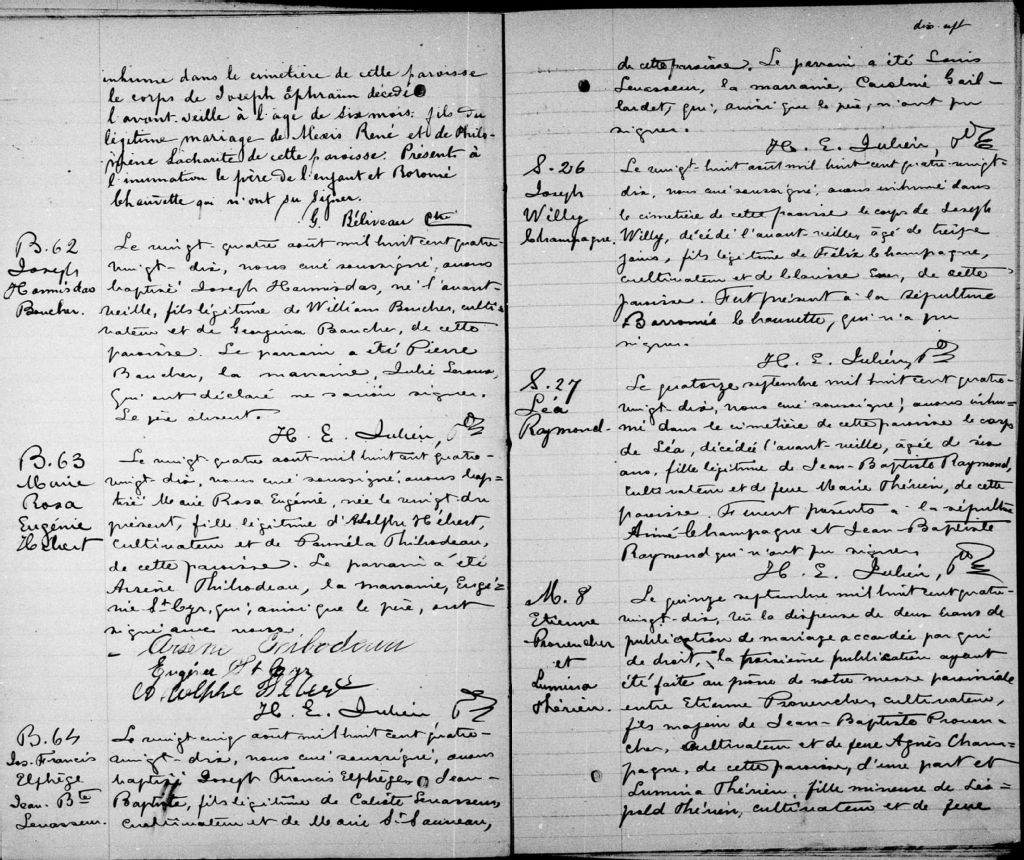 inhumé dans le cimetière de cette paroisse
le corps de Joseph Ephraim décédé
l'avant-veille à l'age de six mois. fils du
légitime mariage de Alexis René et de Philo-
mène Lacharité de cette paroisse. Présents à
l'inumation le père de l'enfant et Boromé
Chaurette qui n'ont su signer.
G. Béliveau Ptre
B. 62
Joseph
Harmisdas
Boucher.
Le vingt-quatre août mil huit cent quatre-
vingt-dix, nous curé soussigné, avons
baptisé Joseph Harmisdas, né l'avant-
veille, fils légitime de William Boucher, culti-
vateur et de Georgina Boucher, de cette
paroisse. Le parrain a été Pierre
Boucher, la marraine, Julie Leroux,
Qui ont déclaré ne savoir signer.
Le père absent.
H. E. Julien, Ptre
B. 63
Marie
Rosa
Eugénie
Hébert
Le vingt-quatre août mil huit cent quatre-
vingt-dix, nous curé soussigné, avons bap-
tisé Marie Rosa Eugénie, née le vingt du
présent, fille légitime d'Adolphe Hébert,
cultivateur et de Paméla Thibodeau,
de cette paroisse. Le parrain a été
Arsène Thibodeau, la marraine, Eugé-
nie St. Cyr, qui, ainsi que le père, ont
signé avec nous.
Arsene Tribodeau
Eugénie St Cyr
Adolphe Hebert
H. E. Julien, Ptre
B. 64
Jos. Francis
Elphège
Jean. Bte
Levasseur.
Le vingt-cinq août mil huit cent quatre-
vingt-dix, nous curé, soussigné, avons
baptisé Joseph Francis Elphège, Jean-
Baptiste, fils légitime de Calixte Levasseur,
cultivateur et de Marie St. Sauveur,
dix-sept
de cette paroisse. Le parrain a été Louis
Levasseur, la marraine, Caroline Gail-
lardet, qui, ainsi que le père, n'ont pu
signer.
H. E. Julien, Ptre
S. 26
Joseph
Willy
Champagne.
Le vingt-huit août mil huit cent quatre-vingt-
dix, nous curé soussigné, avons inhumé dans
le cimetière de cette paroisse le corps de Joseph
Willy, décédé l'avant-veille, âgé de treize
jours, fils légitime de Félix Champagne,
cultivateur et de Clarisse, de cette
paroisse. Fut présent à la sépulture
Barromée Chaurette, qui n'a pu
signer.
H. E. Julien, Ptre
S. 27
Léa
Raymond.
Le quatorze septembre mil huit cent quatre-
vingt-dix, nous curé soussigné, avons inhu-
mé dans le cimetière de cette paroisse le corps
de Léa, décédée l'avant-veille, âgée de six
ans, fille légitime de Jean-Baptiste Raymond,
cultivateur et de feue Marie Thérien, de cette
paroisse. Furent présents à la sépulture
Aimé Champagne et Jean-Baptiste
Raymond qui n'ont pu signer.
H. E. Julien, Ptre
M. 8
Etienne
Provencher
et
Lumina
Thérien.
Le quinze septembre mil huit cent quatre-
vingt-dix, vû la dispense de deux bans de
publication de mariage accordée par qui
de droit, la troisième publication ayant
été faite au prône de notre messe paroissiale
entre Etienne Provencher, cultivateur,
fils majeur de Jean-Baptiste Proven-
cher, cultivateur et de feue Agnès Cham-
pagne, de cette paroisse, d'une part et
Lumina Thérien, fille mineure de Léo-
pold Thérien, cultivateur et de feue